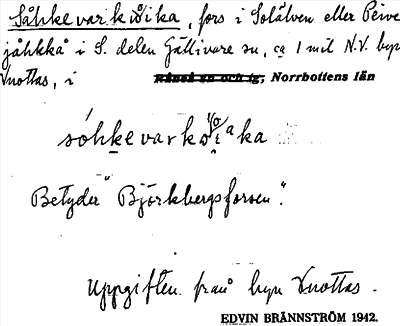 Såhkevarkwika, fors i Solälven eller Peive
jåhkkå i S. delen Gällivare sn, ca 1 mil N.V. byn
Vuottas, i Råneå sn och tg, Norrbottens län
sóhkevarkwika
Betyder "Björkbergsforsen".
Uppgiften från byn Vuottas.
EDVIN BRÄNNSTRÖM 1942.